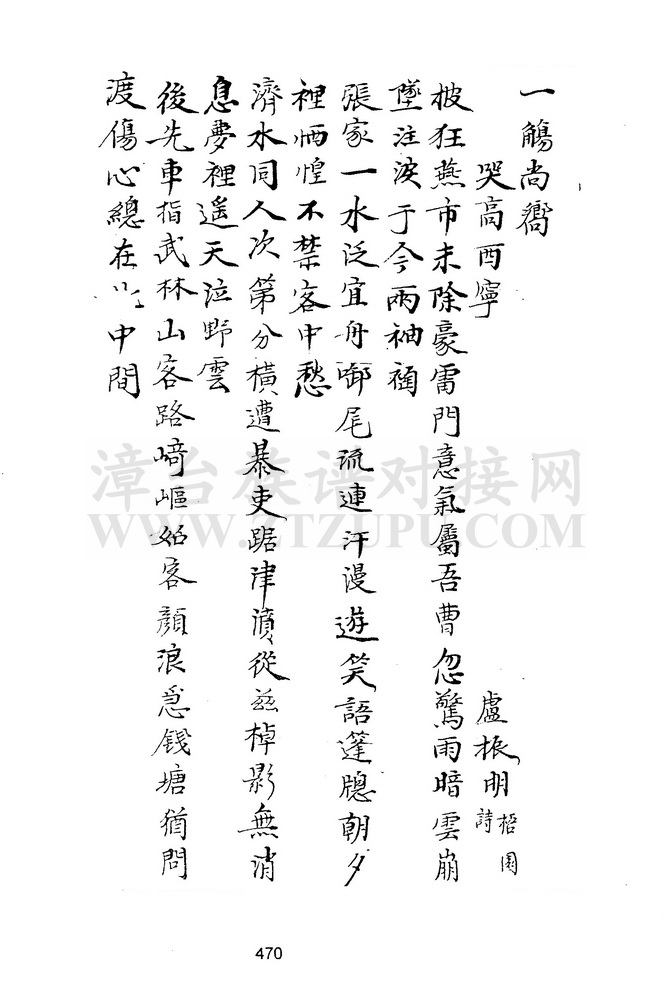 一觴尚嚮
哭高西寧
盧振明 梧園詩
披狂燕市未除豪雷門意氣屬吾曹忽驚雨暗雲崩
墜注淚于今兩袖
張家一水泛宜舟啣尾流連汗漫遊笑語篷牕朝夕
裡恓惶不禁客中愁
濟水同人次第分橫遭暴吏踞津濆從茲棹影無消
息夢裡遙天泣野雲
後先車指武林山客路﨑嶇始客顏浪急錢塘猶問
渡傷心總在中間
漳台族谱对接网
WWW.ZTZUPU.COM
470